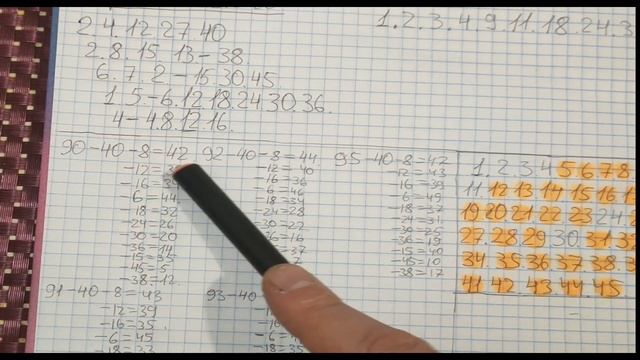 2.4.12.27.40
1.2.3.4.9.11.18.24.3
2.8.15.13-38.
6.7.2-15.30.45.
1.5-6.12.18.24.30.36.
4-4.8.12.16.
90-40-8=42
-12=38
-16=34
-6=44
-18=32
-24=26
-30=20
-36=14
-15=35
-45=5
-38=12.
92-40-8=44.
-12=40
-16=36
-6=46
-18=34
-24=28
-30=22
-36=16
=37
95-40-8=47
-12=43
-16=39
-6=49
-18=37
-24=31
-30=25
-36=19
-15=40
-45=10
-38=17
1.2.3.4 5 6 7 8
11 12 13 14 15 16 1
19 20 21 22 23 24 2
27.28 29 30. 31 3
34 35.36.37.38.3
41 42 43 44 45.
91-40-8=43
-12=39
-16=35.
-6=45
-18=33
93-40
-18=35